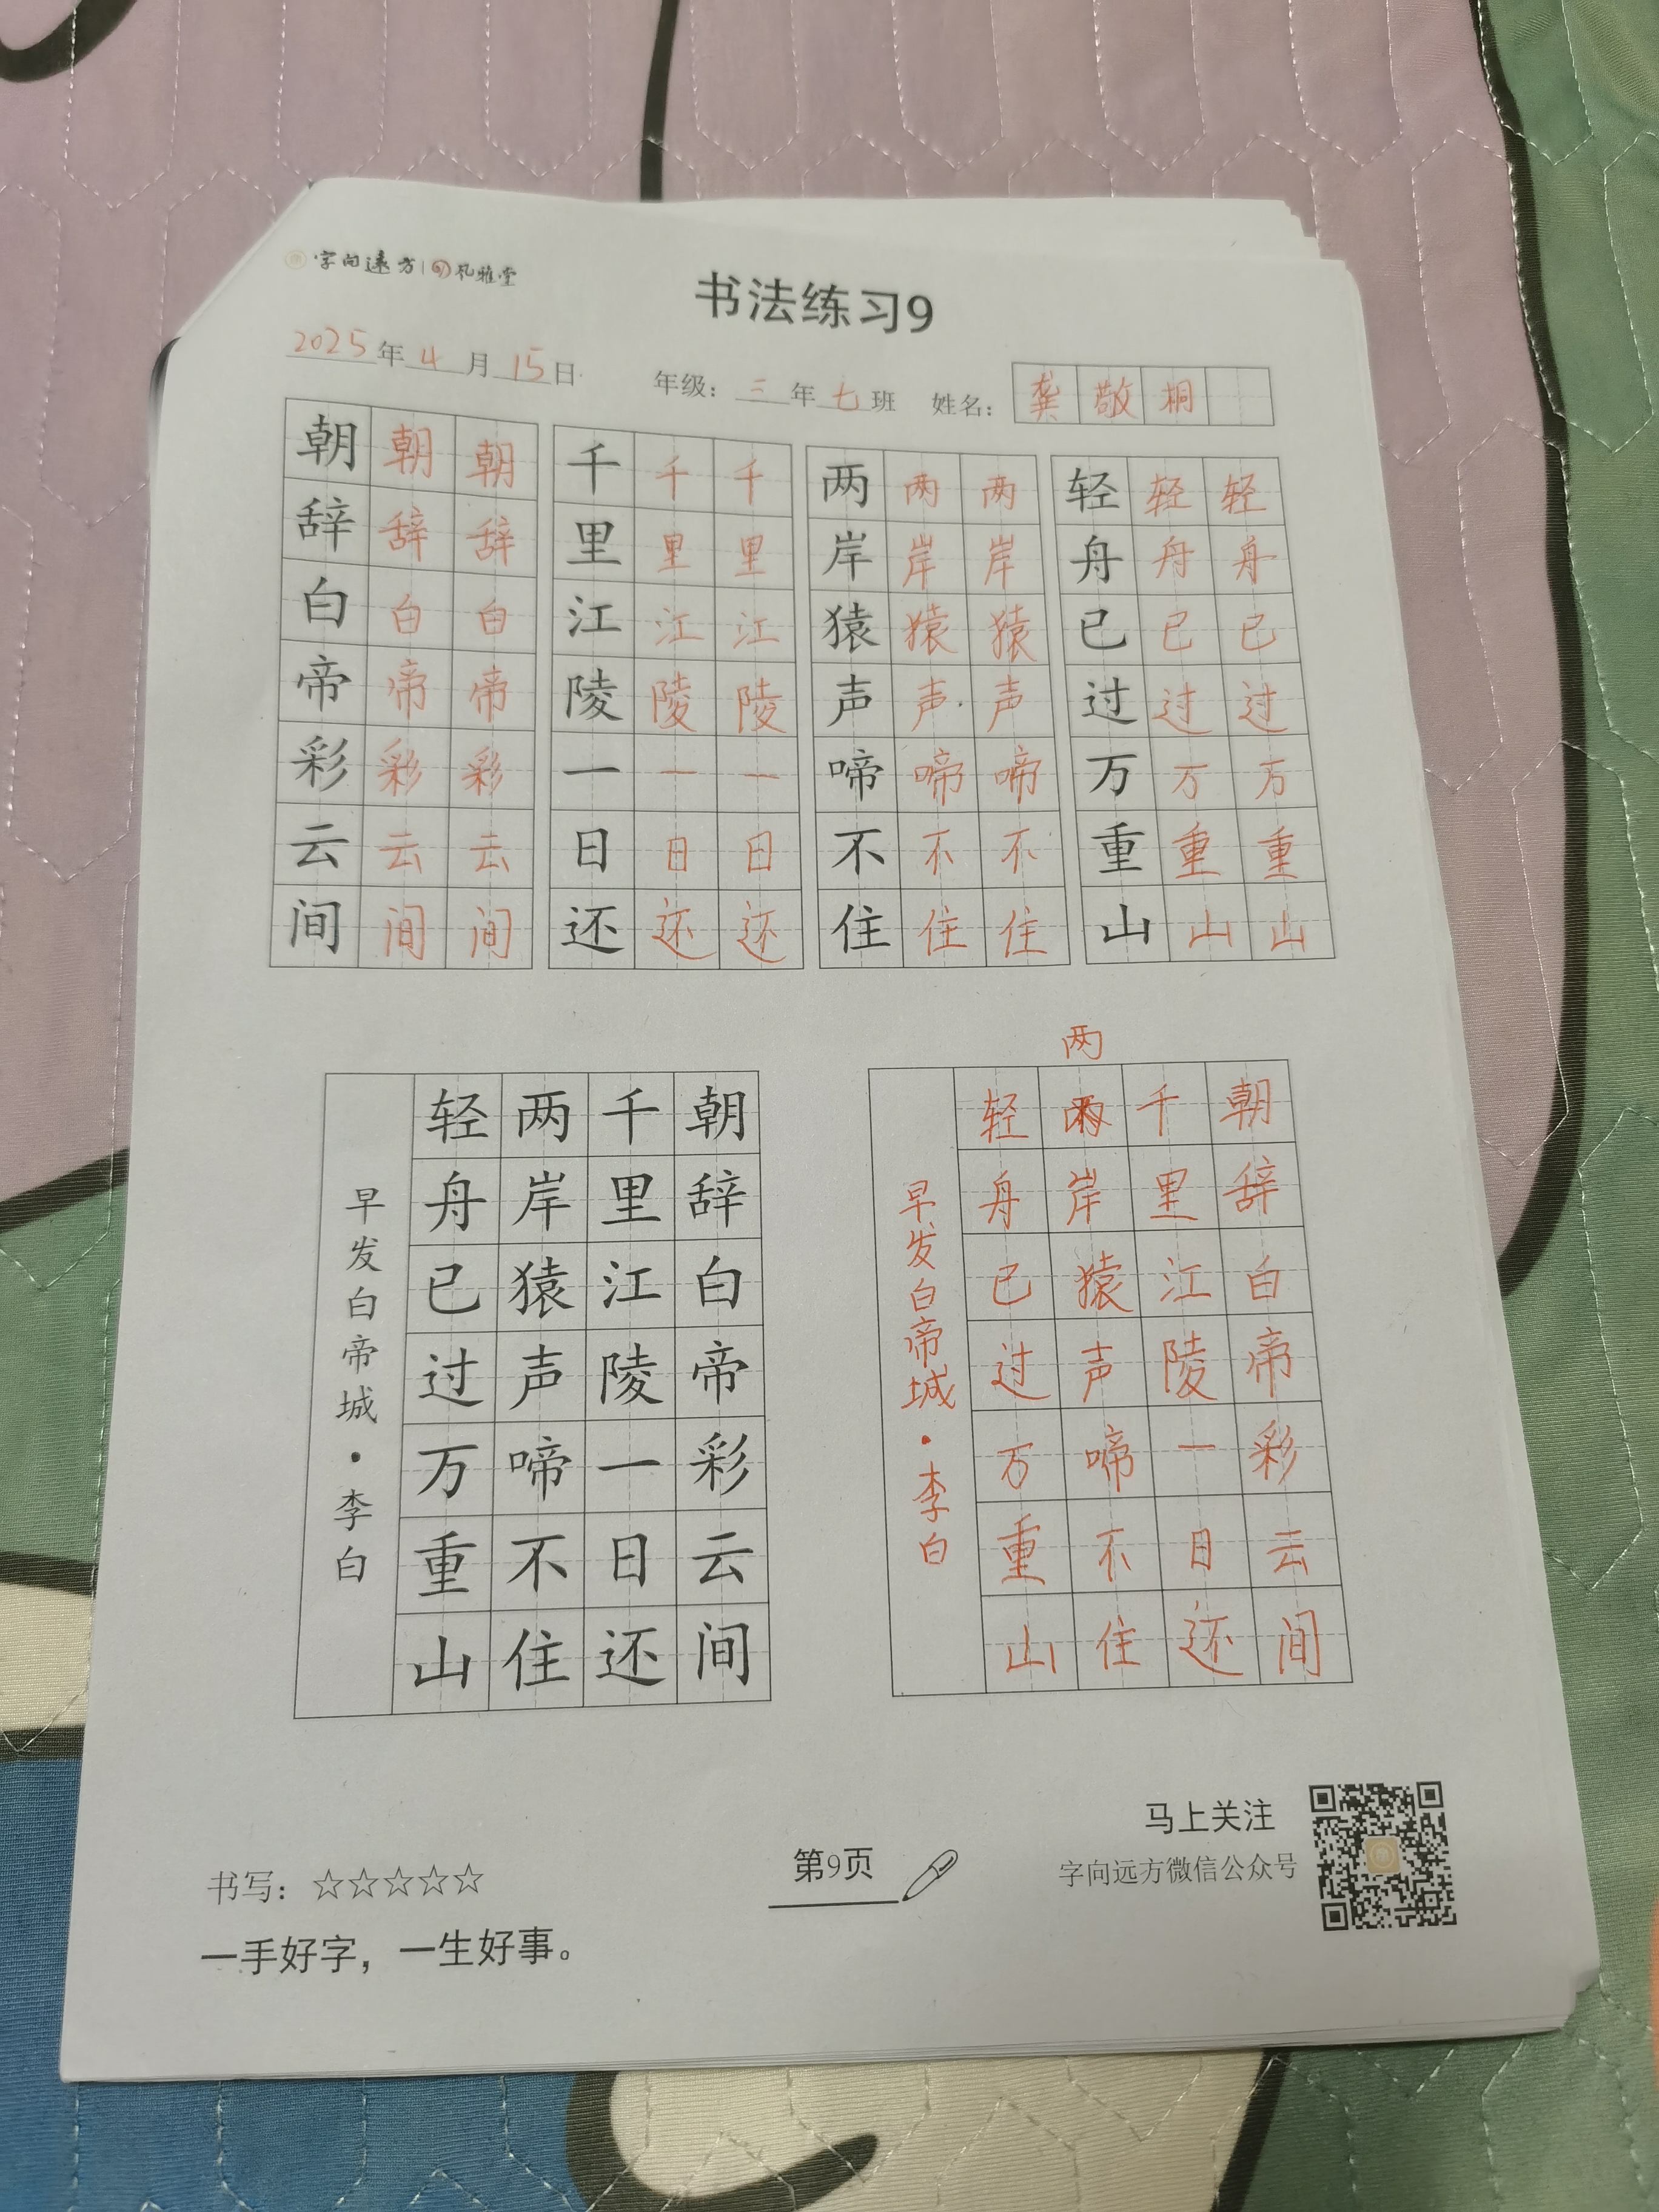 字向远方 风雅堂
书法练习9
2025年4月15日 年级：三年七班 姓名：龚敬桐
朝朝朝 千千千 两两两 轻轻轻
辞辞辞 里里里 岸岸岸 舟舟舟
白白白 江江江 猿猿猿 已已已
帝帝帝 陵陵陵 声声声 过过过
彩彩彩 一一一 啼啼啼 万万万
云云云 日日日 不不不 重重重
间间间 还还还 住住住 山山山
朝辞白帝彩云间
千里江陵一日还
两岸猿声啼不住
轻舟已过万重山
早发白帝城·李白
朝辞白帝彩云间
千里江陵一日还
两
岸猿声啼不住
轻舟已过万重山
早发白帝城·李白
书写：☆☆☆☆☆
一手好字，一生好事。
第9页
马上关注
字向远方微信公众号